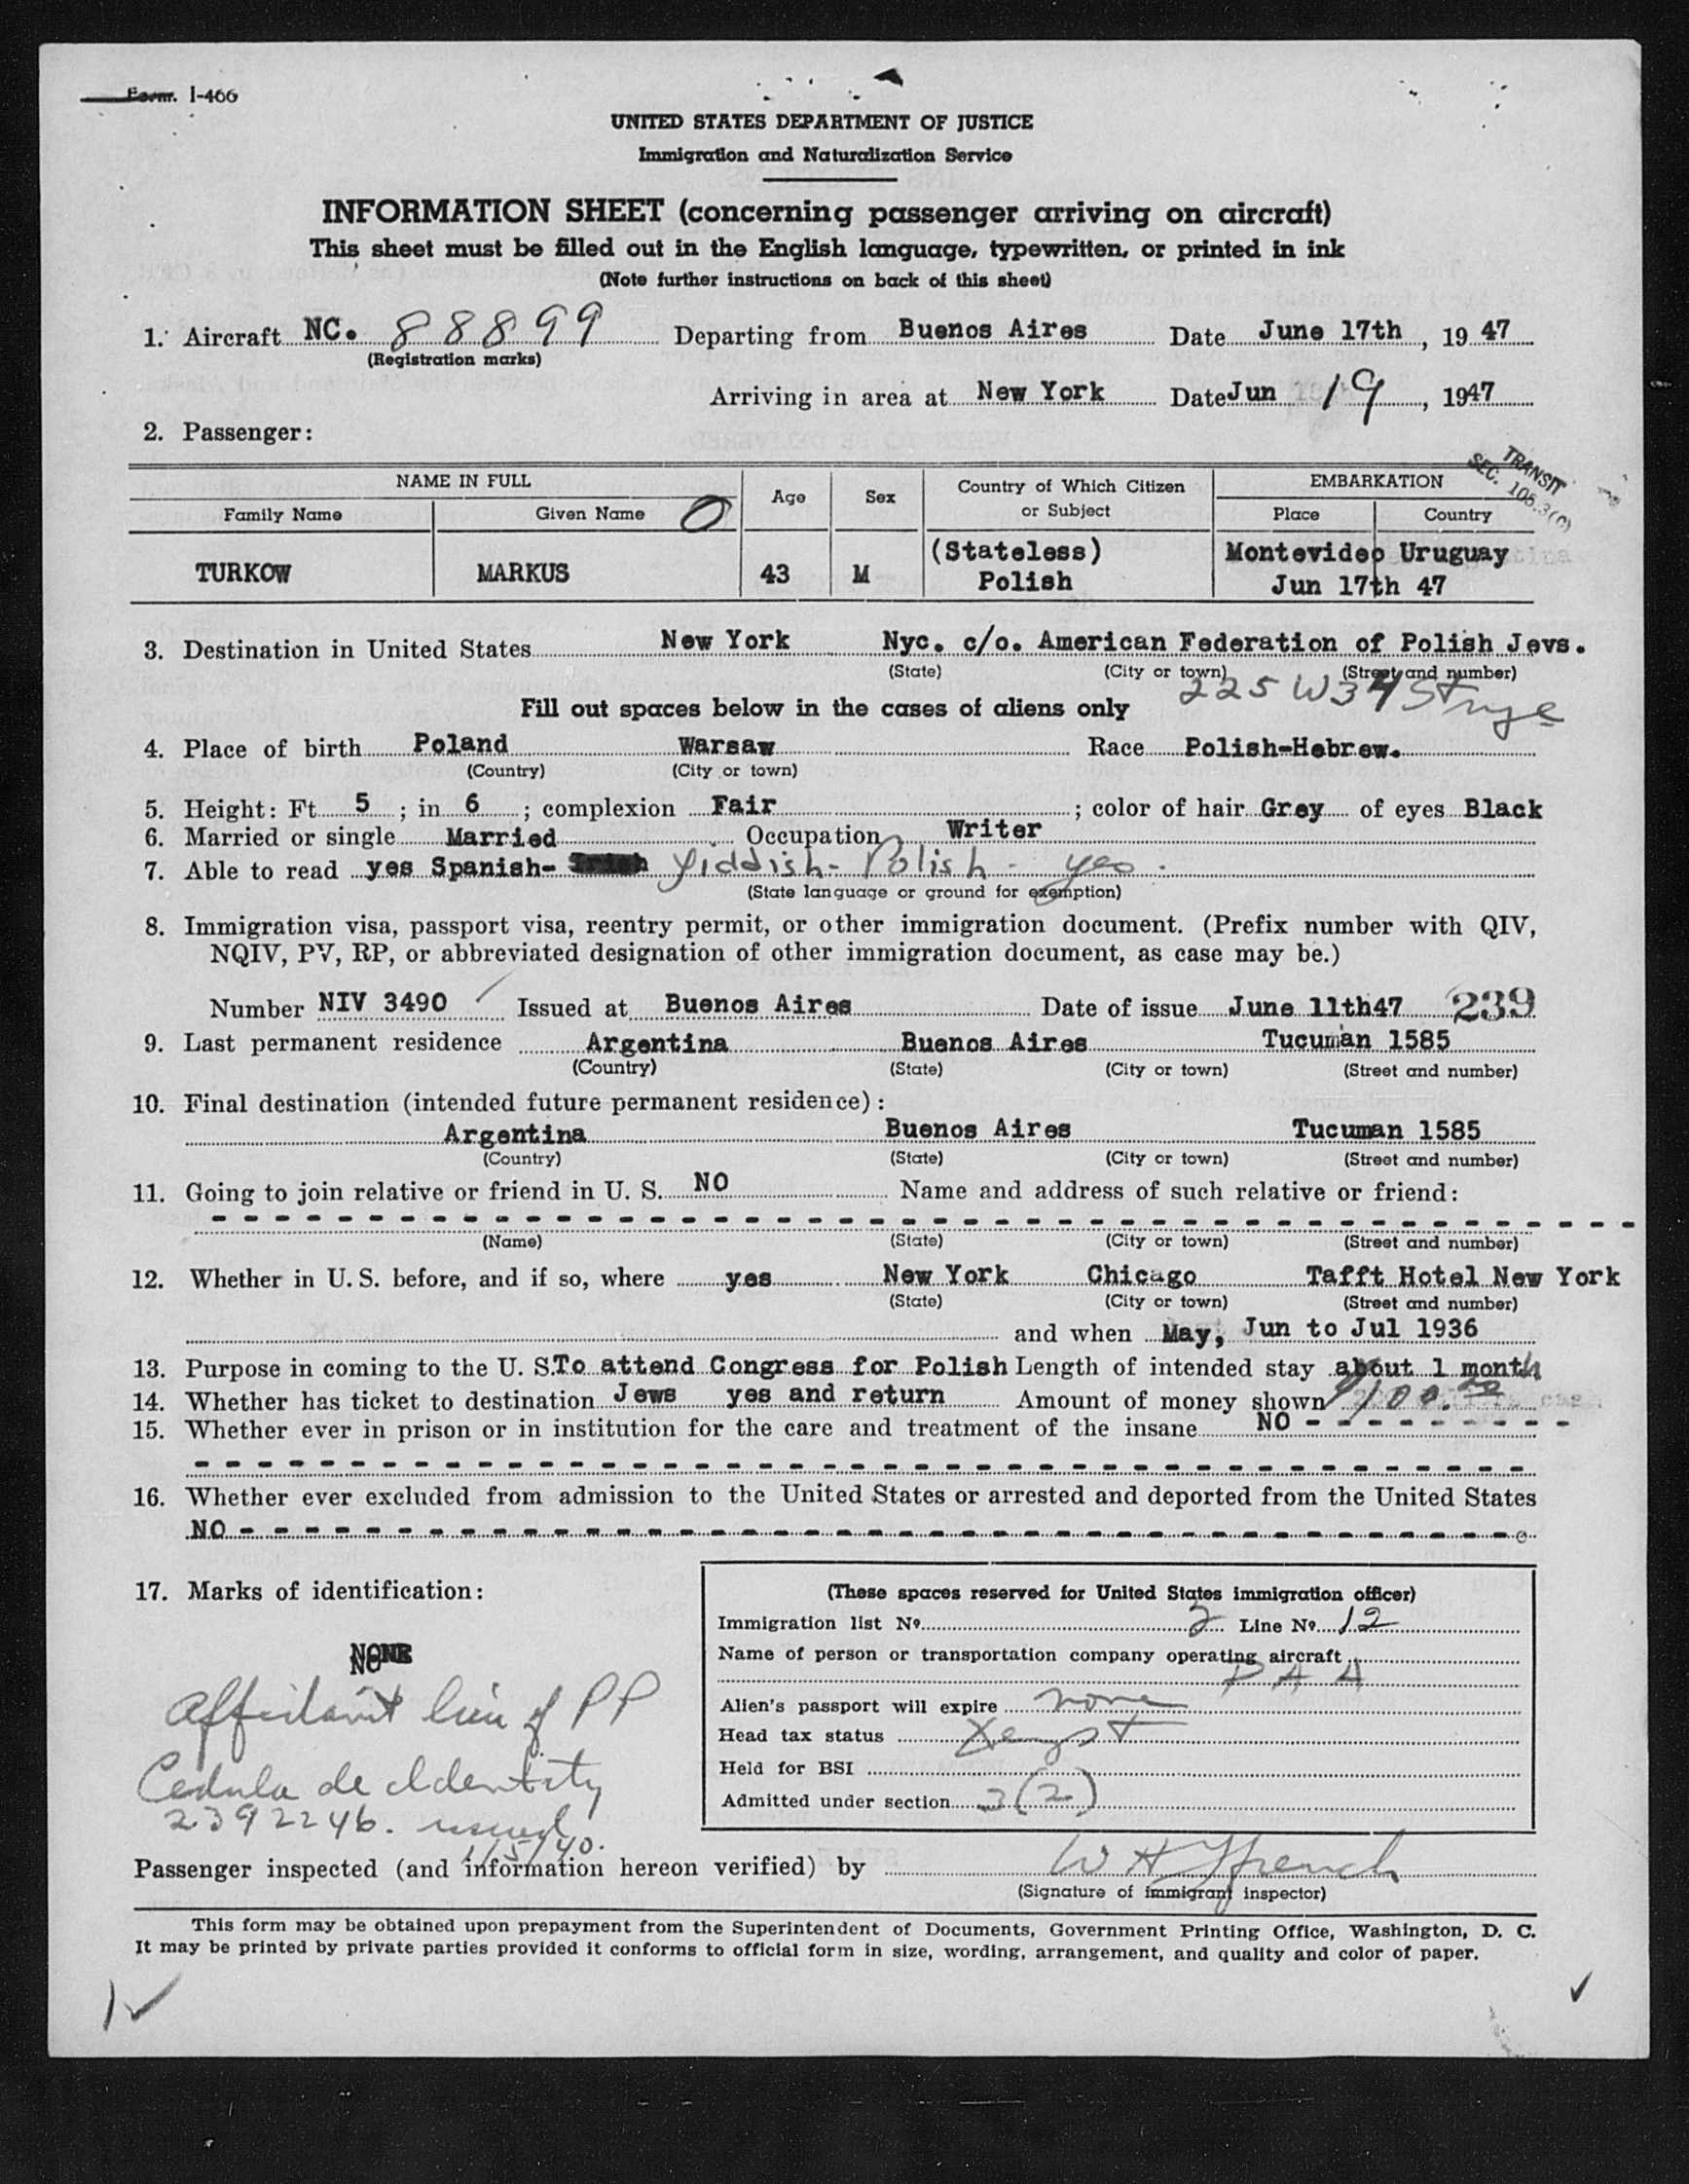 Form. I-466
UNITED STATES DEPARTMENT OF JUSTICE
Immigration and Naturalization Service
INFORMATION SHEET (concerning passenger arriving on aircraft)
This sheet must be filled out in the English language, typewritten, or printed in ink
(Note further instructions on back of this sheet)
1. Aircraft NC. 88899 Departing from Buenos Aires Date June 17th, 19 47
(Registration marks)
Arriving in area at New York Date Jun 19, 1947
2. Passenger:
TRANSIT
SEC. 105.3(c)
NAME IN FULL Age Sex Country of Which Citizen or Subject EMBARKATION
Family Name Given Name O Place Country
(Stateless) Montevideo Uruguay
TURKOW MARKUS 43 M Polish Jun 17th 47
3. Destination in United States New York Nyc. c/o. American Federation of Polish Jevs.
(State) (City or town) (Street and number)
225 W 34 St nyc
Fill out spaces below in the cases of aliens only
4. Place of birth Poland Warsaw Race Polish-Hebrew.
(Country) (City or town)
5. Height: Ft. 5 ; in 6 ; complexion Fair ; color of hair Grey of eyes Black
6. Married or single Married Occupation Writer
7. Able to read yes Spanish- Yiddish - Polish - yes.
(State language or ground for exemption)
8. Immigration visa, passport visa, reentry permit, or other immigration document. (Prefix number with QIV,
NQIV, PV, RP, or abbreviated designation of other immigration document, as case may be.)
Number NIV 3490 Issued at Buenos Aires Date of issue June 11th47 239
9. Last permanent residence Argentina Buenos Aires Tucuman 1585
(Country) (State) (City or town) (Street and number)
10. Final destination (intended future permanent residence):
Argentina Buenos Aires Tucuman 1585
(Country) (State) (City or town) (Street and number)
11. Going to join relative or friend in U. S. NO Name and address of such relative or friend:
(Name) (State) (City or town) (Street and number)
12. Whether in U. S. before, and if so, where yes New York Chicago Tafft Hotel New York
(State) (City or town) (Street and number)
and when May, Jun to Jul 1936
13. Purpose in coming to the U. S. To attend Congress for Polish Length of intended stay about 1 month
14. Whether has ticket to destination Jews yes and return Amount of money shown $100.00
15. Whether ever in prison or in institution for the care and treatment of the insane NO - - - - - - - - -
16. Whether ever excluded from admission to the United States or arrested and deported from the United States
NO - - - - - - - - -
17. Marks of identification:
NONE
Affidavit lieu of PP
Cedula de Identity
2392246. issued
1/15/40.
(These spaces reserved for United States immigration officer)
Immigration list No. 2 Line No. 12
Name of person or transportation company operating aircraft
P A A
Alien's passport will expire none
Head tax status Xempt
Held for BSI
Admitted under section 3(2)
Passenger inspected (and information hereon verified) by W H French
(Signature of immigrant inspector)
This form may be obtained upon prepayment from the Superintendent of Documents, Government Printing Office, Washington, D. C.
It may be printed by private parties provided it conforms to official form in size, wording, arrangement, and quality and color of paper.